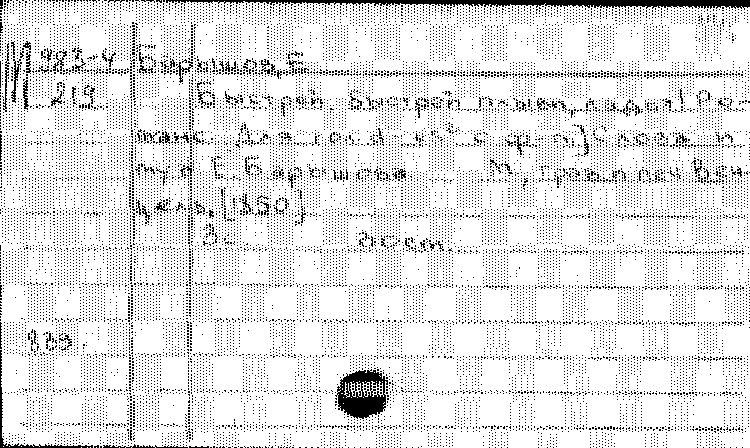 М 983-4 Барышов, Е
219 Быстрей, быстрей плыви, ладья! Ро-
манс. Для гол. с ф-п] Слова и
муз Е. Барышова М, Венцель
[1880]
3с. 20 cm.
839.